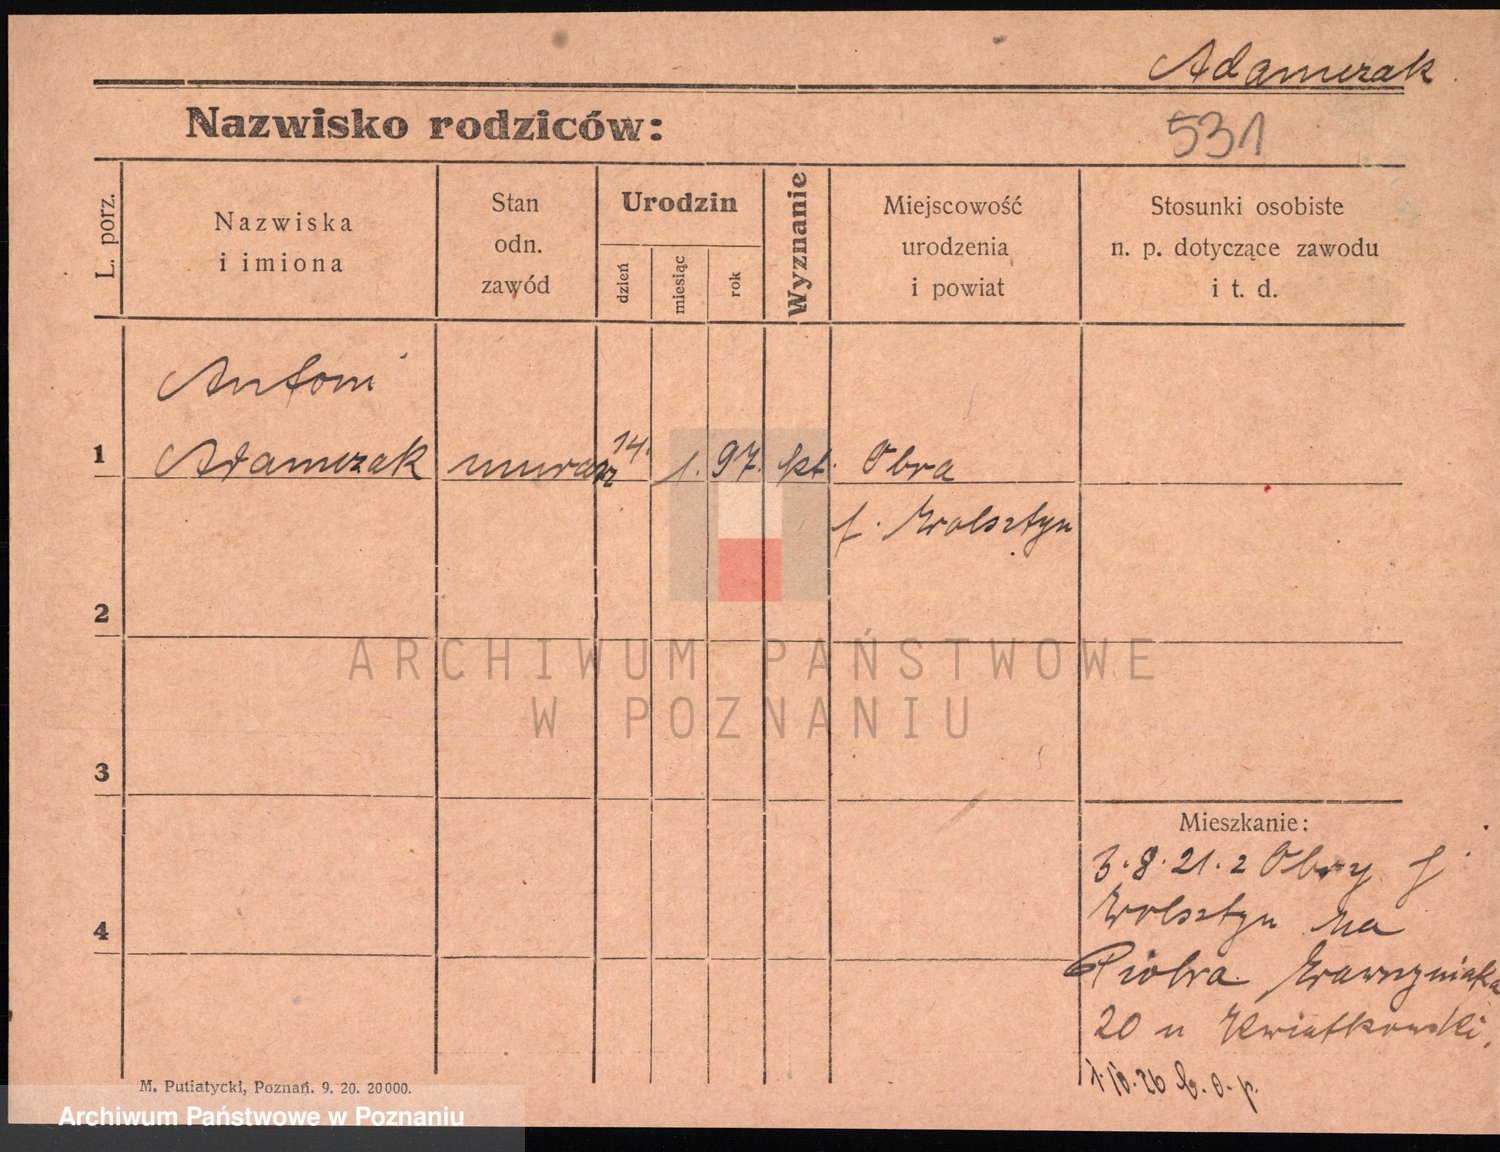 Adamczak
Nazwisko rodziców:
531
L. porz.
Nazwiska
i imiona
Stan
odn.
zawód
Urodzin
dzień
miesiąc
rok
Wyznanie
Miejscowość
urodzenia
i powiat
Stosunki osobiste
n. p. dotyczące zawodu
i t. d.
Antoni
1 Adamczak murarz 14. 1. 97. kt. Obra
f. Wolsztyn
2
3
4
ARCHIWUM PAŃSTWOWE
W POZNANIU
Mieszkanie:
3.8.21. z Obry f
Wolsztyn na
Piotra Wawrzyniaka
20 u Kwiatkowski.
M. Putiatycki, Poznań. 9. 20. 20000.
Archiwum Państwowe w Poznaniu